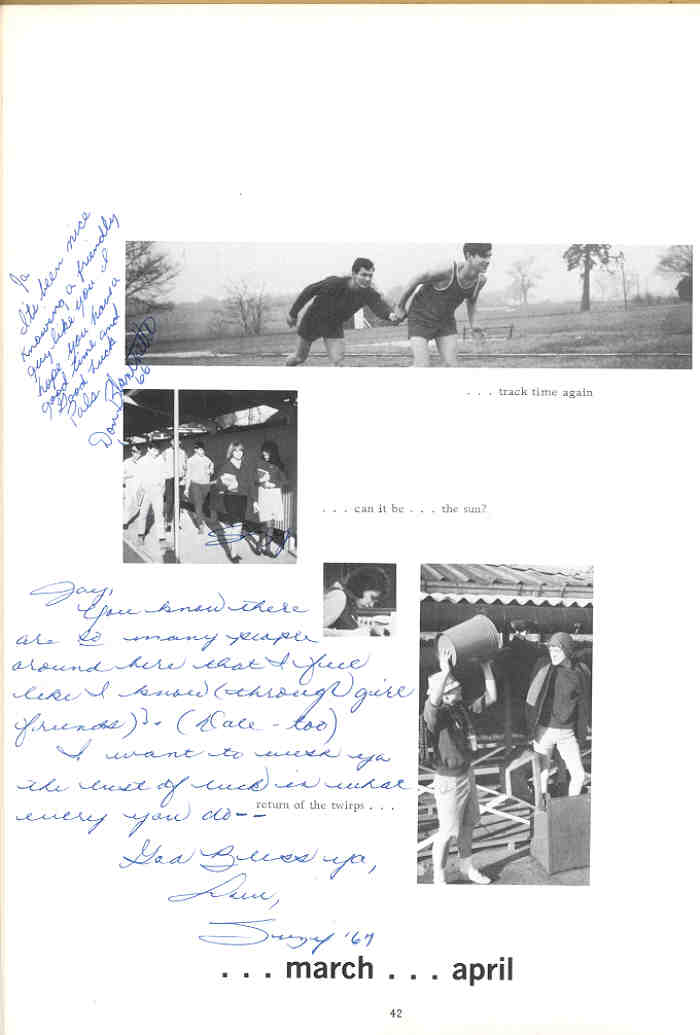 Ja
It's been nice
knowing a friendly
guy like you I
hope you have a
good time and
Good luck
Pals
Don
66
. . . track time again
. . . can it be . . . the sun?
Suzy
Jay,
You know there
are so many people
around here that I feel
like I know (through girl
friends) (Dale - too)
I want to wish ya
the best of luck in what
every you do--
return of the twirps . . .
God Bless ya,
Love,
Suzy '67
. . . march . . . april
42